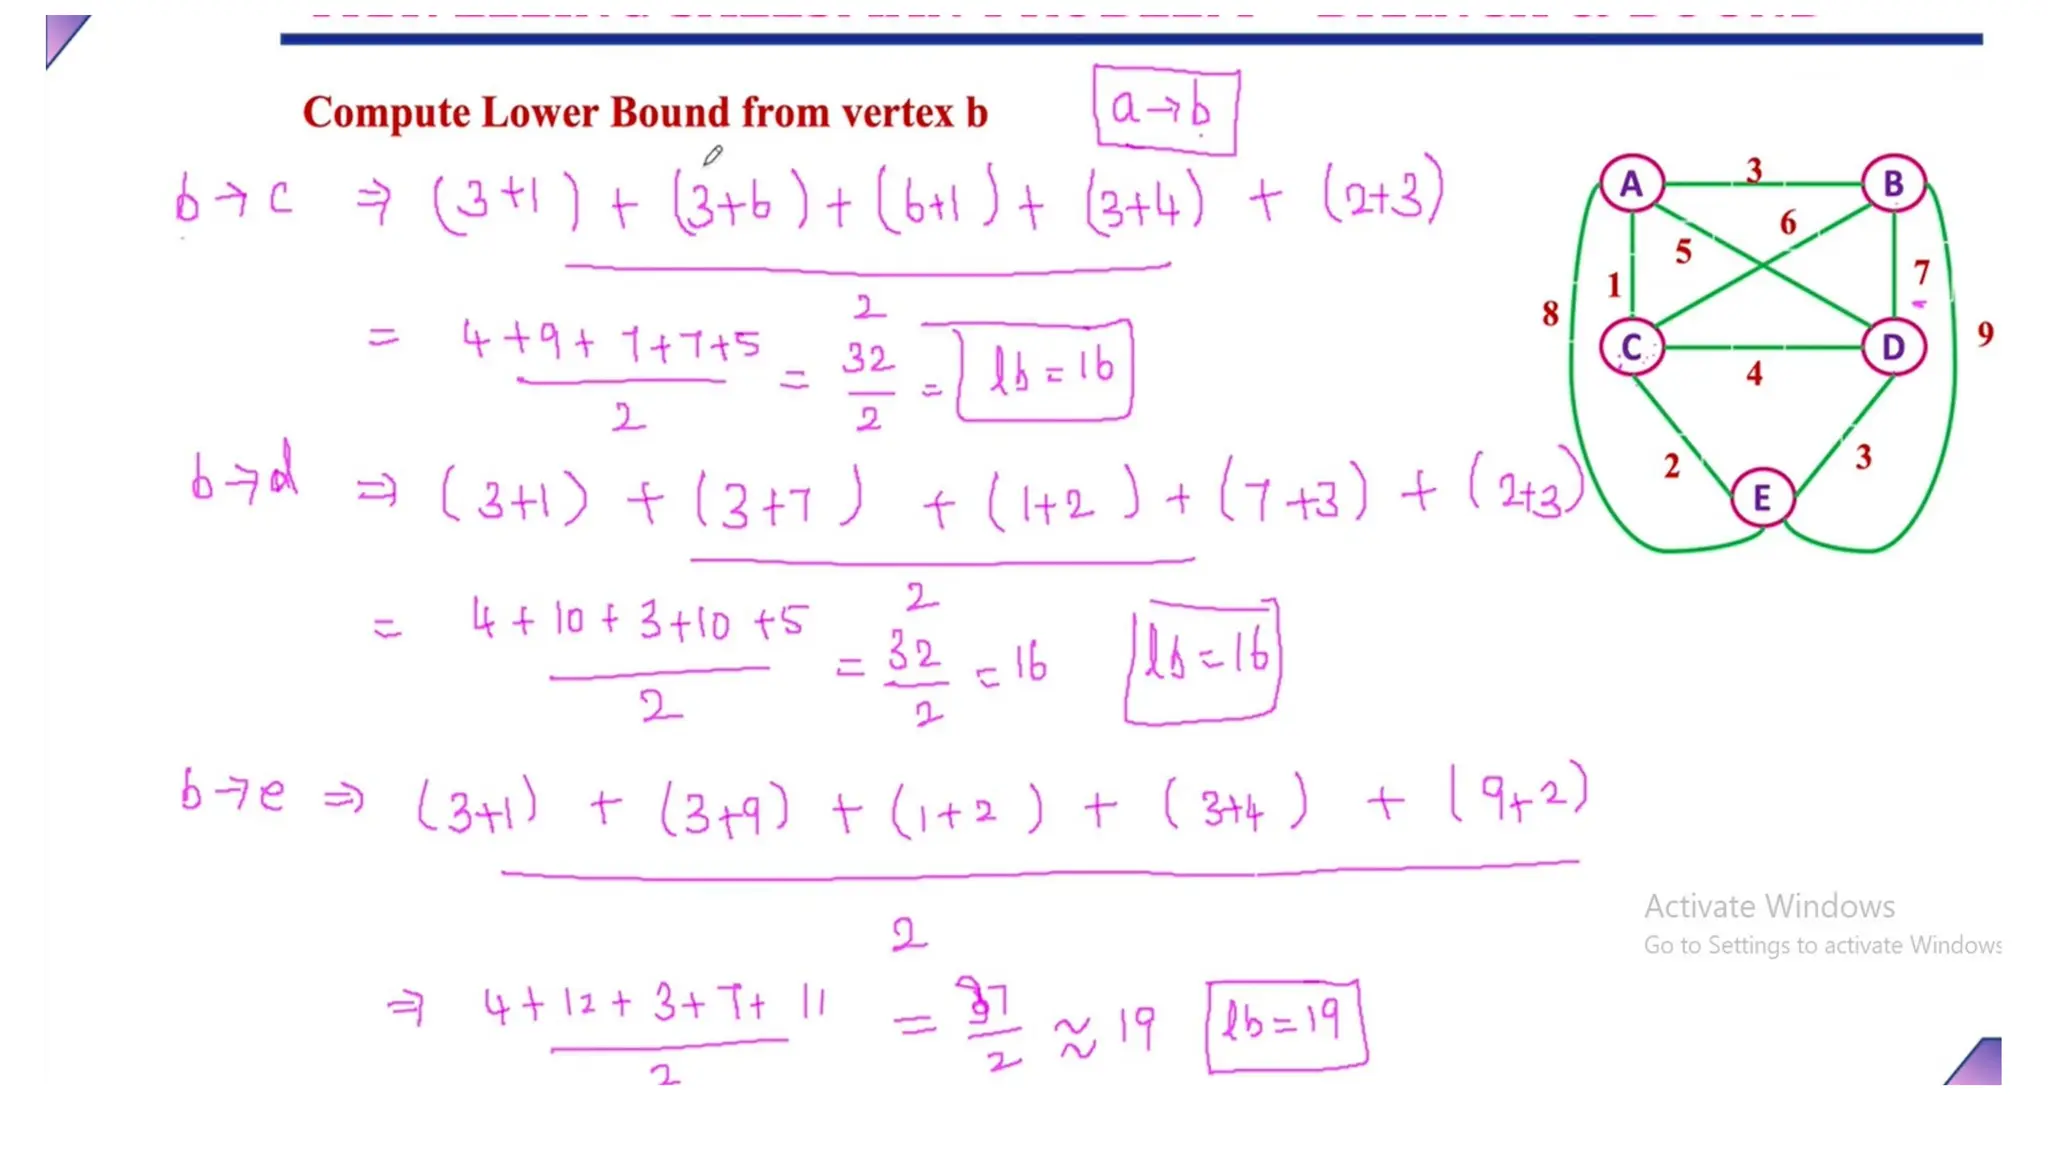 Compute Lower Bound from vertex b
a→b
b→c ⇒ (3+1) + (3+6) + (6+1) + (3+4) + (2+3)
2
= 4+9+7+7+5
2
= 32
2
= lb = 16
b→d ⇒ (3+1) + (3+7) + (1+2) + (7+3) + (2+3)
2
= 4+10+3+10+5
2
= 32
2
= 16
lb = 16
b→e ⇒ (3+1) + (3+9) + (1+2) + (3+4) + (9+2)
2
⇒ 4+12+3+7+11
2
= 37
2
≈ 19
lb = 19
A 3 B
6
5
1 7
8 9
C 4 D
2 3
E
Activate Windows
Go to Settings to activate Windows